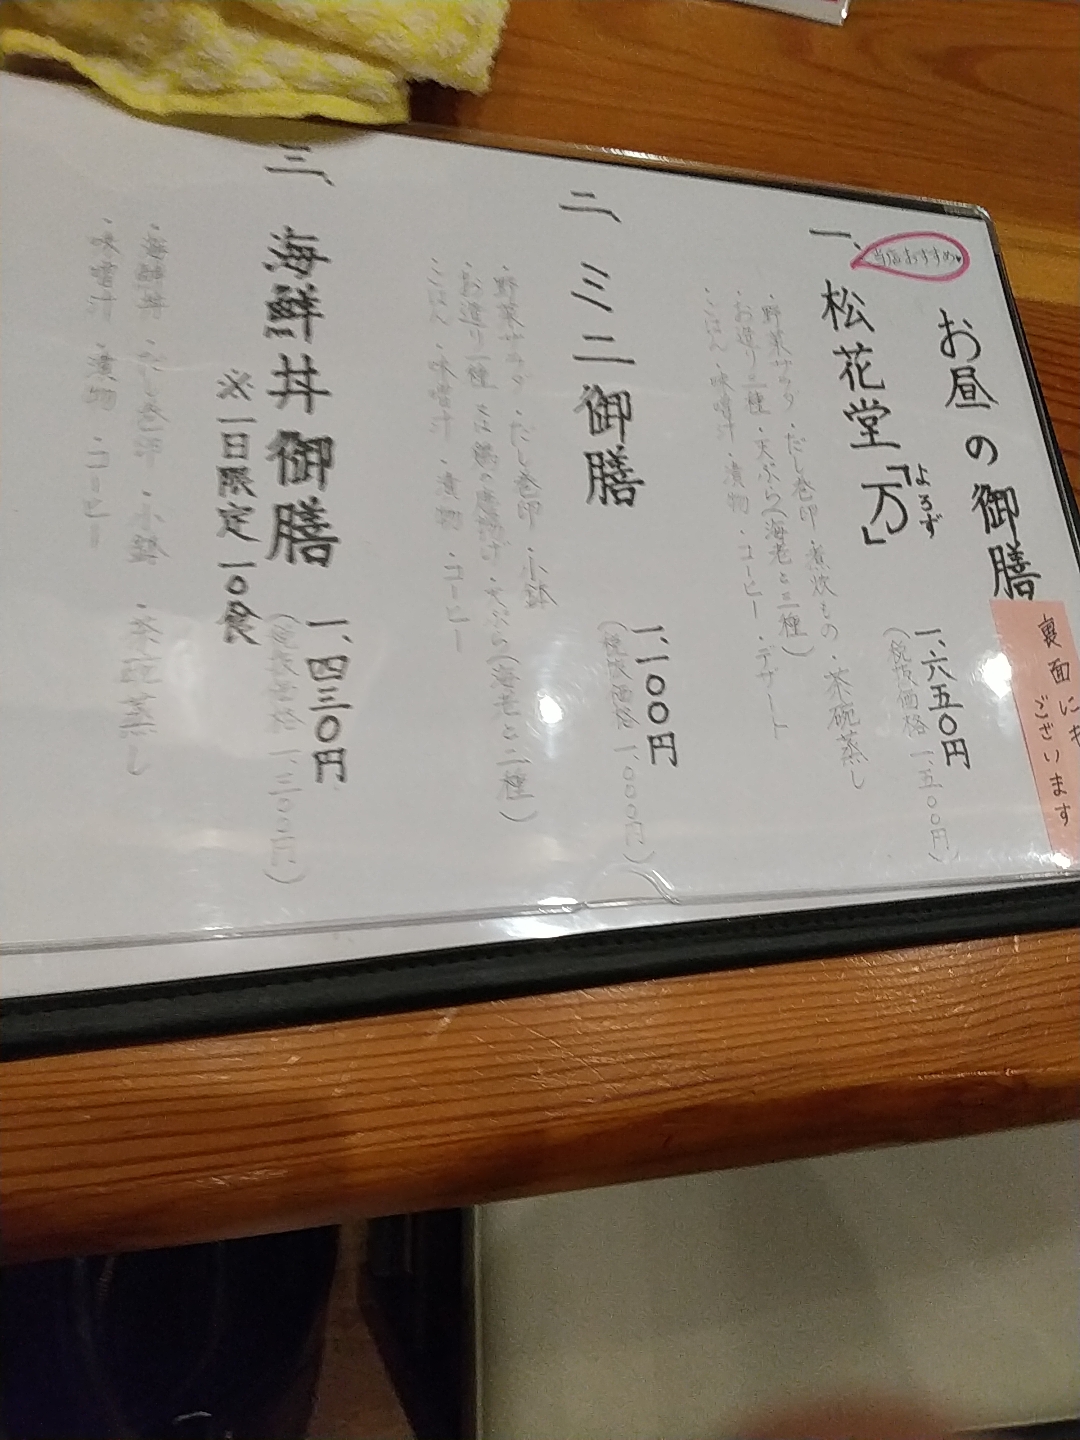 お昼の御膳
裏面にも
ございます
当店おすすめ♥
一、松花堂「万」
よろず
一、六五〇円
(税抜価格 一、五〇〇円)
・野菜サラダ・だし巻卵・煮炊もの・茶碗蒸し
・お造り二種・天ぷら(海老と三種)
・ごはん・味噌汁・漬物・コーヒー・デザート
二、ミニ御膳
一、一〇〇円
(税抜価格 一、〇〇〇円)
・野菜サラダ・だし巻卵・小鉢
・お造り一種 又は 鶏の唐揚げ・天ぷら(海老と二種)
・ごはん・味噌汁・漬物・コーヒー
三、海鮮丼御膳
※一日限定一〇食
一、四三〇円
(税抜価格 一、三〇〇円)
・海鮮丼・だし巻卵・小鉢・茶碗蒸し
・味噌汁・漬物・コーヒー